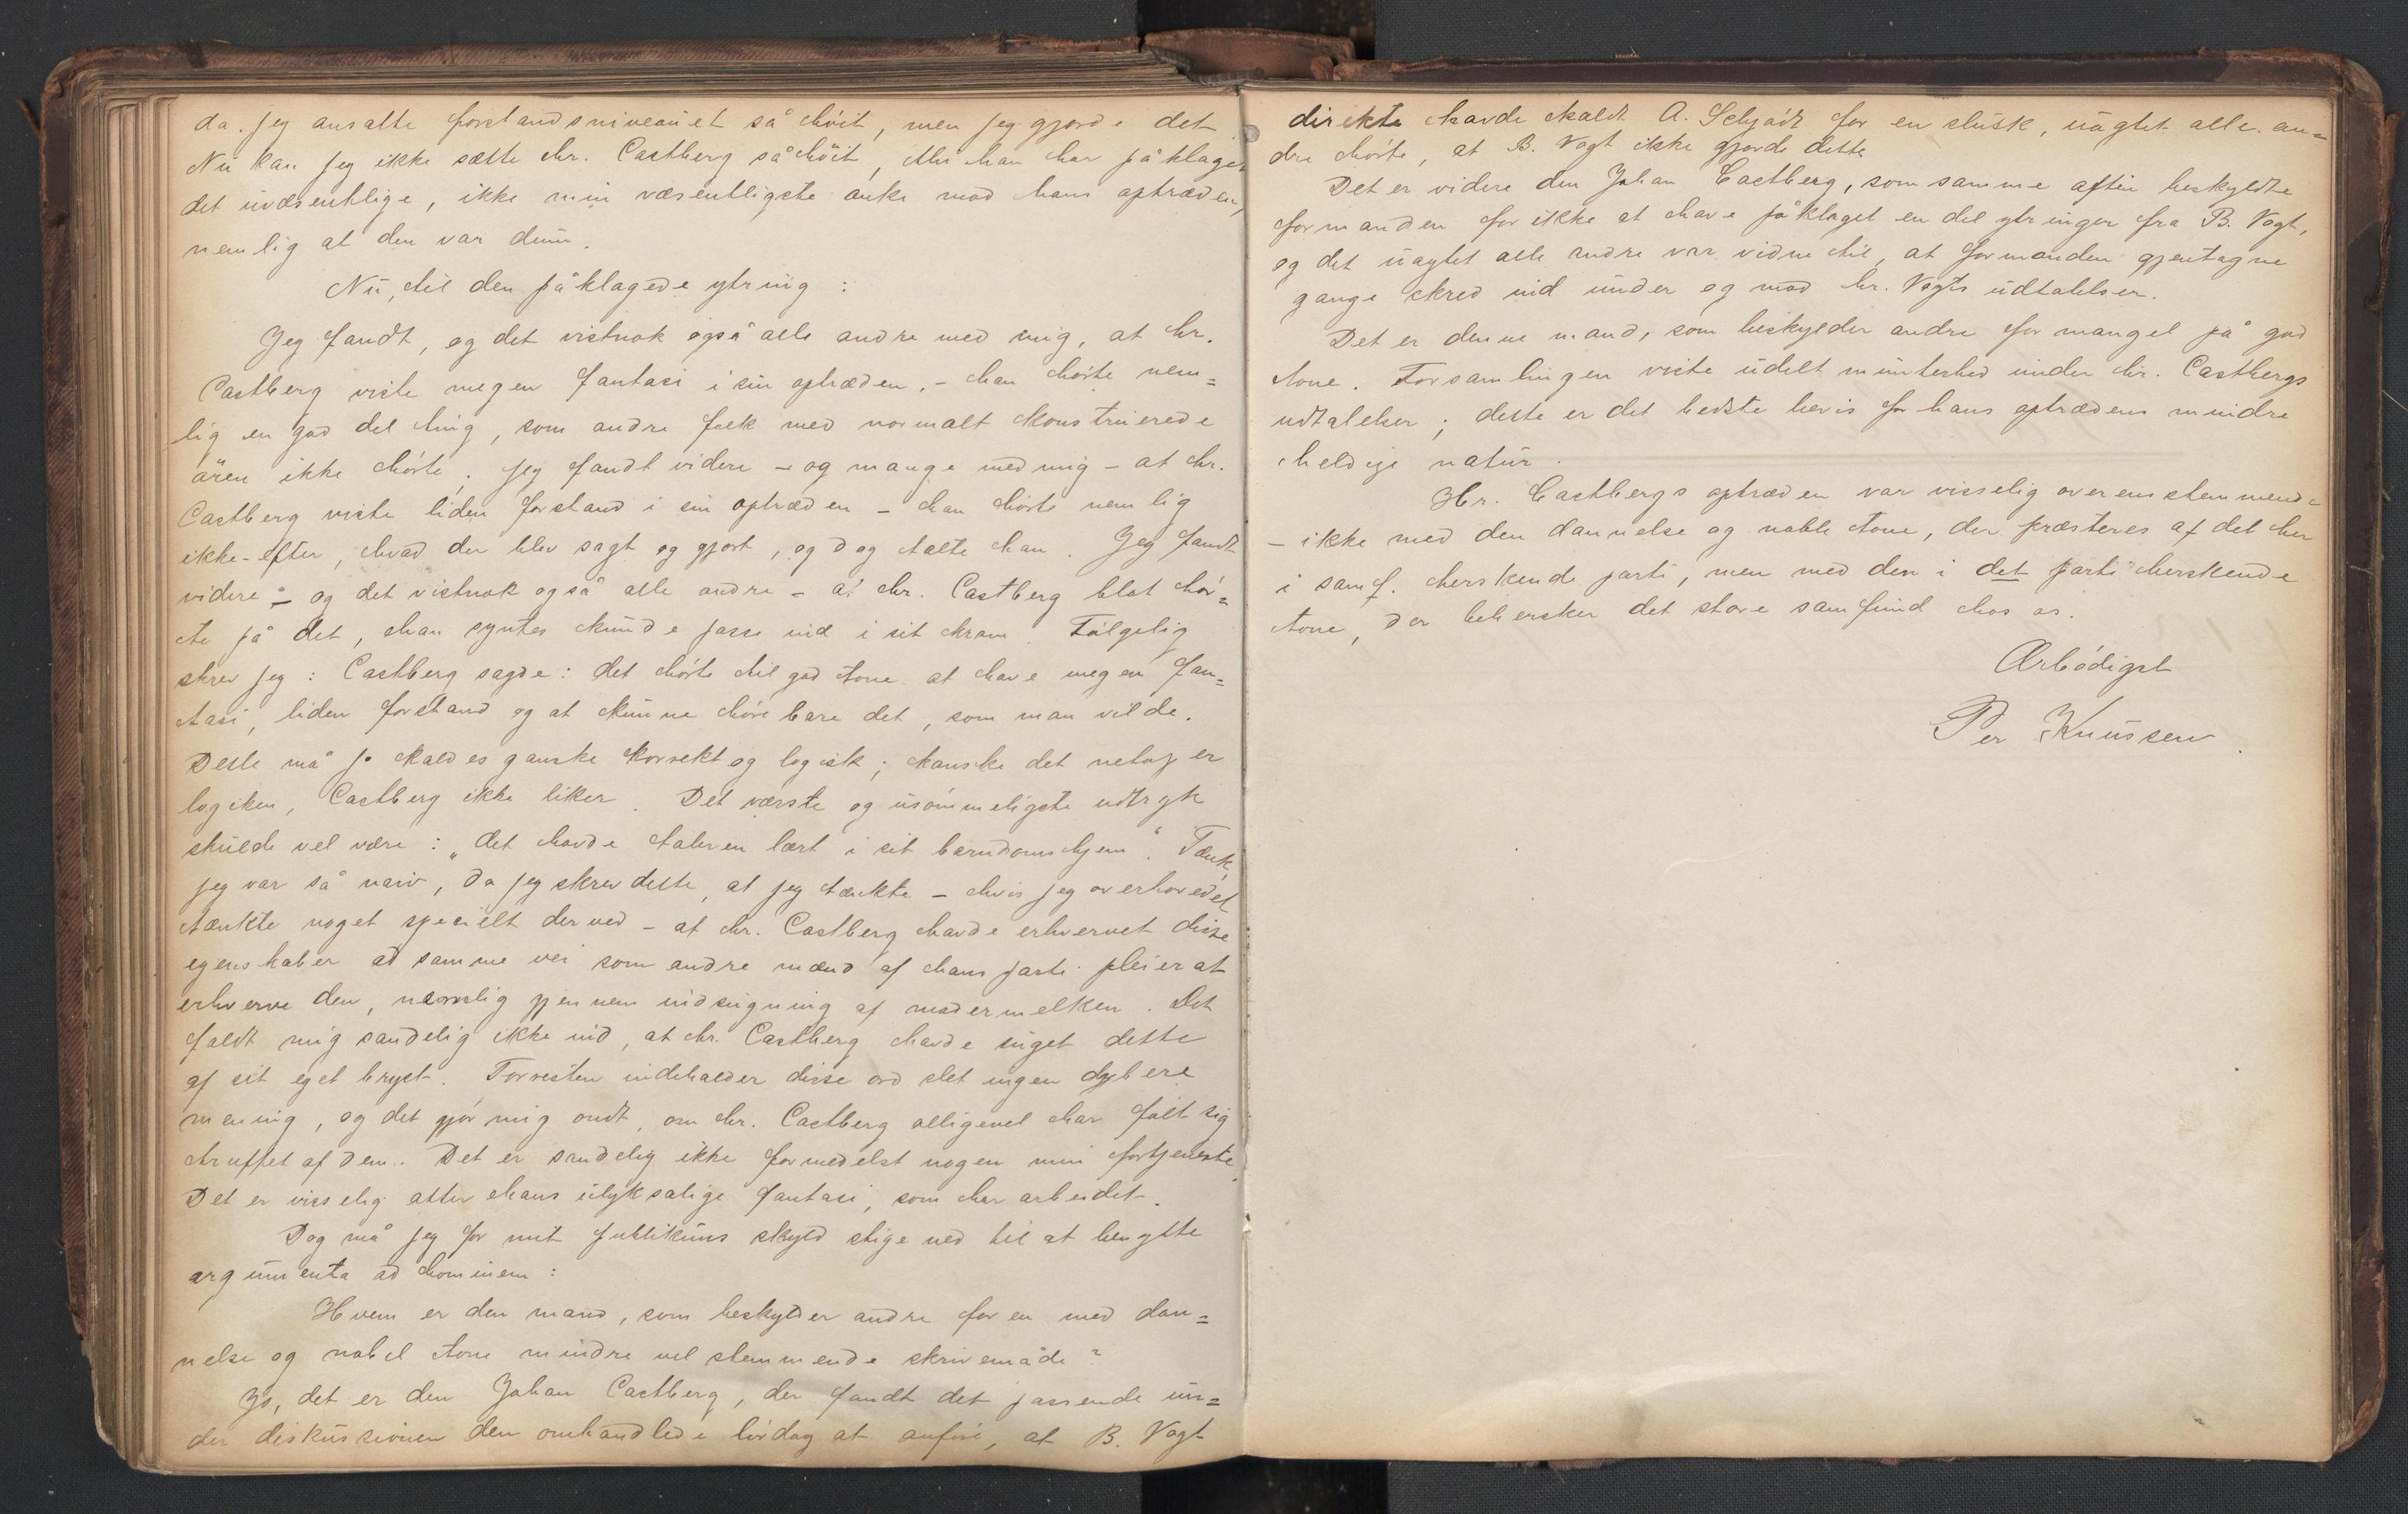 da. jeg ansatte forstandsniveauet så höit, men jeg gjorde det.
Nu kan jeg ikke sætte hr. Castberg så höit, thi han har påklaget
det uvæsentlige, ikke min væsentligste anke mod hans optræden,
nemlig at den var dum.
Nu, til den påklagede ytring:
Jeg fandt, og det vistnok også alle andre med mig, at hr.
Castberg viste megen fantasi i sin optræden, – han hörte nem=
lig en god del ting, som andre folk med normalt konstruerede
ören ikke hörte; jeg fandt videre – og mange med mig – at hr.
Castberg viste liden forstand i sin optræden – han hörte nemlig
ikke efter, hvad der blev sagt og gjort, og dog talte han. Jeg fandt
videre – og det vistnok også alle andre – at hr. Castberg blot hör=
te på det, han syntes kunde passe ind i sit kram. Fölgelig
skrev jeg: Castberg sagde: det hörte til god tone at have megen fan=
tasi, liden forstand og at kunne höre bare det, som man vilde.
Dette må jo kaldes ganske korrekt og logisk; kanske det netop er
logiken, Castberg ikke liker. Det værste og usömmeligste udtryk
skulde vel være: „det havde taleren lært i sit barndomshjem“. Tænk,
jeg var så naiv, da jeg skrev dette, at jeg tænkte – hvis jeg overhovedet
tænkte noget specielt derved – at hr. Castberg havde erhvervet disse
egenskaber ad samme vei som andre mænd af hans parti pleier at
erhverve den, nemlig gjennem indsugning af modermelken. Det
faldt mig sandelig ikke ind, at hr. Castberg havde suget dette
af sit eget bryst. Forresten indeholder disse ord slet ingen dybere
mening, og det gjör mig ondt, om hr. Castberg alligevel har fölt sig
truffet af dem. Det er sandelig ikke formedelst nogen min fortjeneste.
Det er visselig atter hans ulyksalige fantasi, som har arbeidet.
Dog må jeg for mit publikums skyld stige ned til at benytte
argumenta ad hominem:
Hvem er den mand, som beskylder andre for en med dan=
nelse og nobel tone mindre vel stemmende skrivemåde?
Jo, det er den Johan Castberg, der fandt det passende un=
der diskussionen den omhandlede lördag at anföre, at B. Vogt
direkte havde kaldt A. Schjödt for en slusk, uagtet alle an=
dre hörte, at B. Vogt ikke gjorde dette
Det er videre den Johan Castberg, som samme aften beskyldte
formanden for ikke at have påklaget en del ytringer fra B. Vogt,
og det uagtet alle andre var vidne til, at formanden gjentagne
gange skred ind under og mod hr. Vogts udtalelser.
Det er denne mand, som beskylder andre for mangel på god
tone. Forsamlingen viste udelt munterhed under hr. Castbergs
udtalelser; dette er det bedste bevis for hans optrædens mindre
heldige natur.
Hr. Castbergs optræden var visselig overensstemmende
– ikke med den dannelse og noble tone, der præsteres af det her
i samf. herskende parti, men med den i det parti herskende
tone, der behersker det store samfund hos os.
Ærbödigst
Per Knussen.